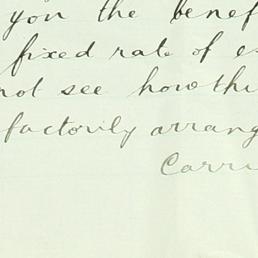 you the benef
fixed rate of e
not see how thi
factorily arrang
Carri